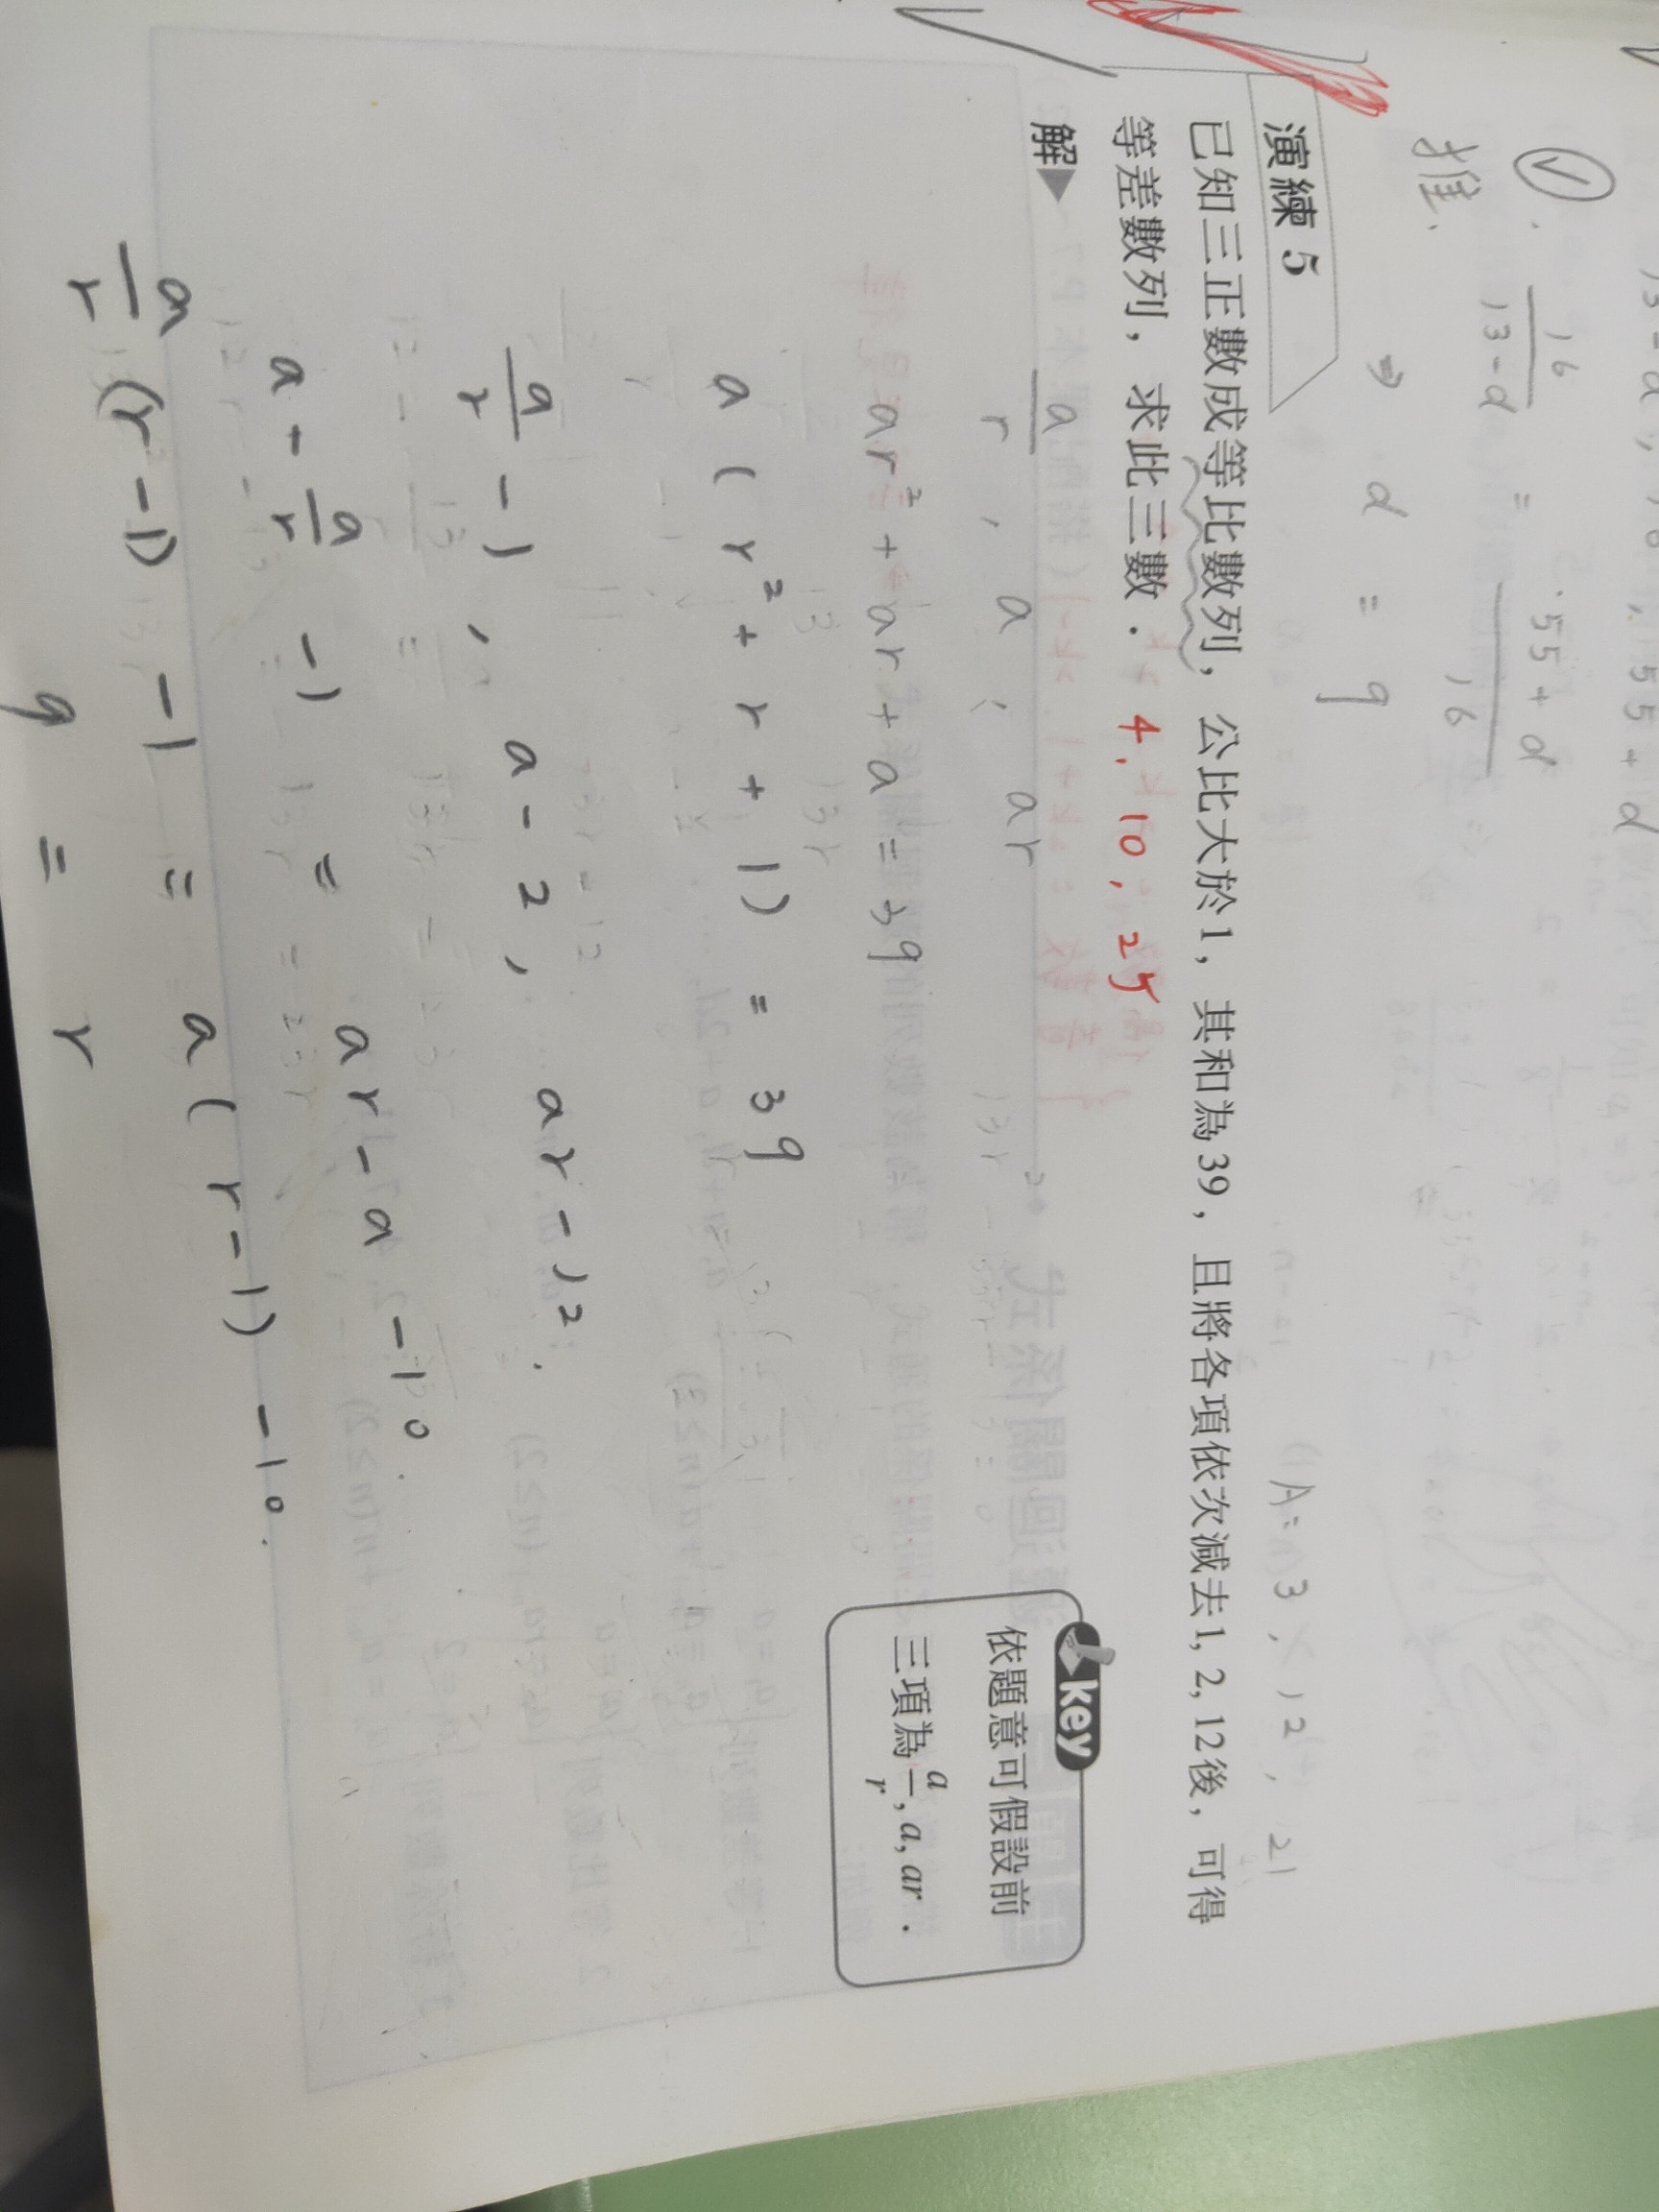 13-d, 16, 55+d
16/(13-d) = (55+d)/16
⇒ d = 9
演練 5
已知三正數成等比數列，公比大於1，其和為39，且將各項依次減去1, 2, 12後，可得
等差數列，求此三數． 4, 10, 25
解▶
a/r , a , ar
ar² + ar + a = 39
a ( r² + r + 1 ) = 39
a/r - 1 , a - 2 , ar - 12
a - a/r - 1 = ar - a - 10
a/r (r - 1) - 1 = a ( r - 1) - 10
9 = r
key
依題意可假設前
三項為 a/r, a, ar．